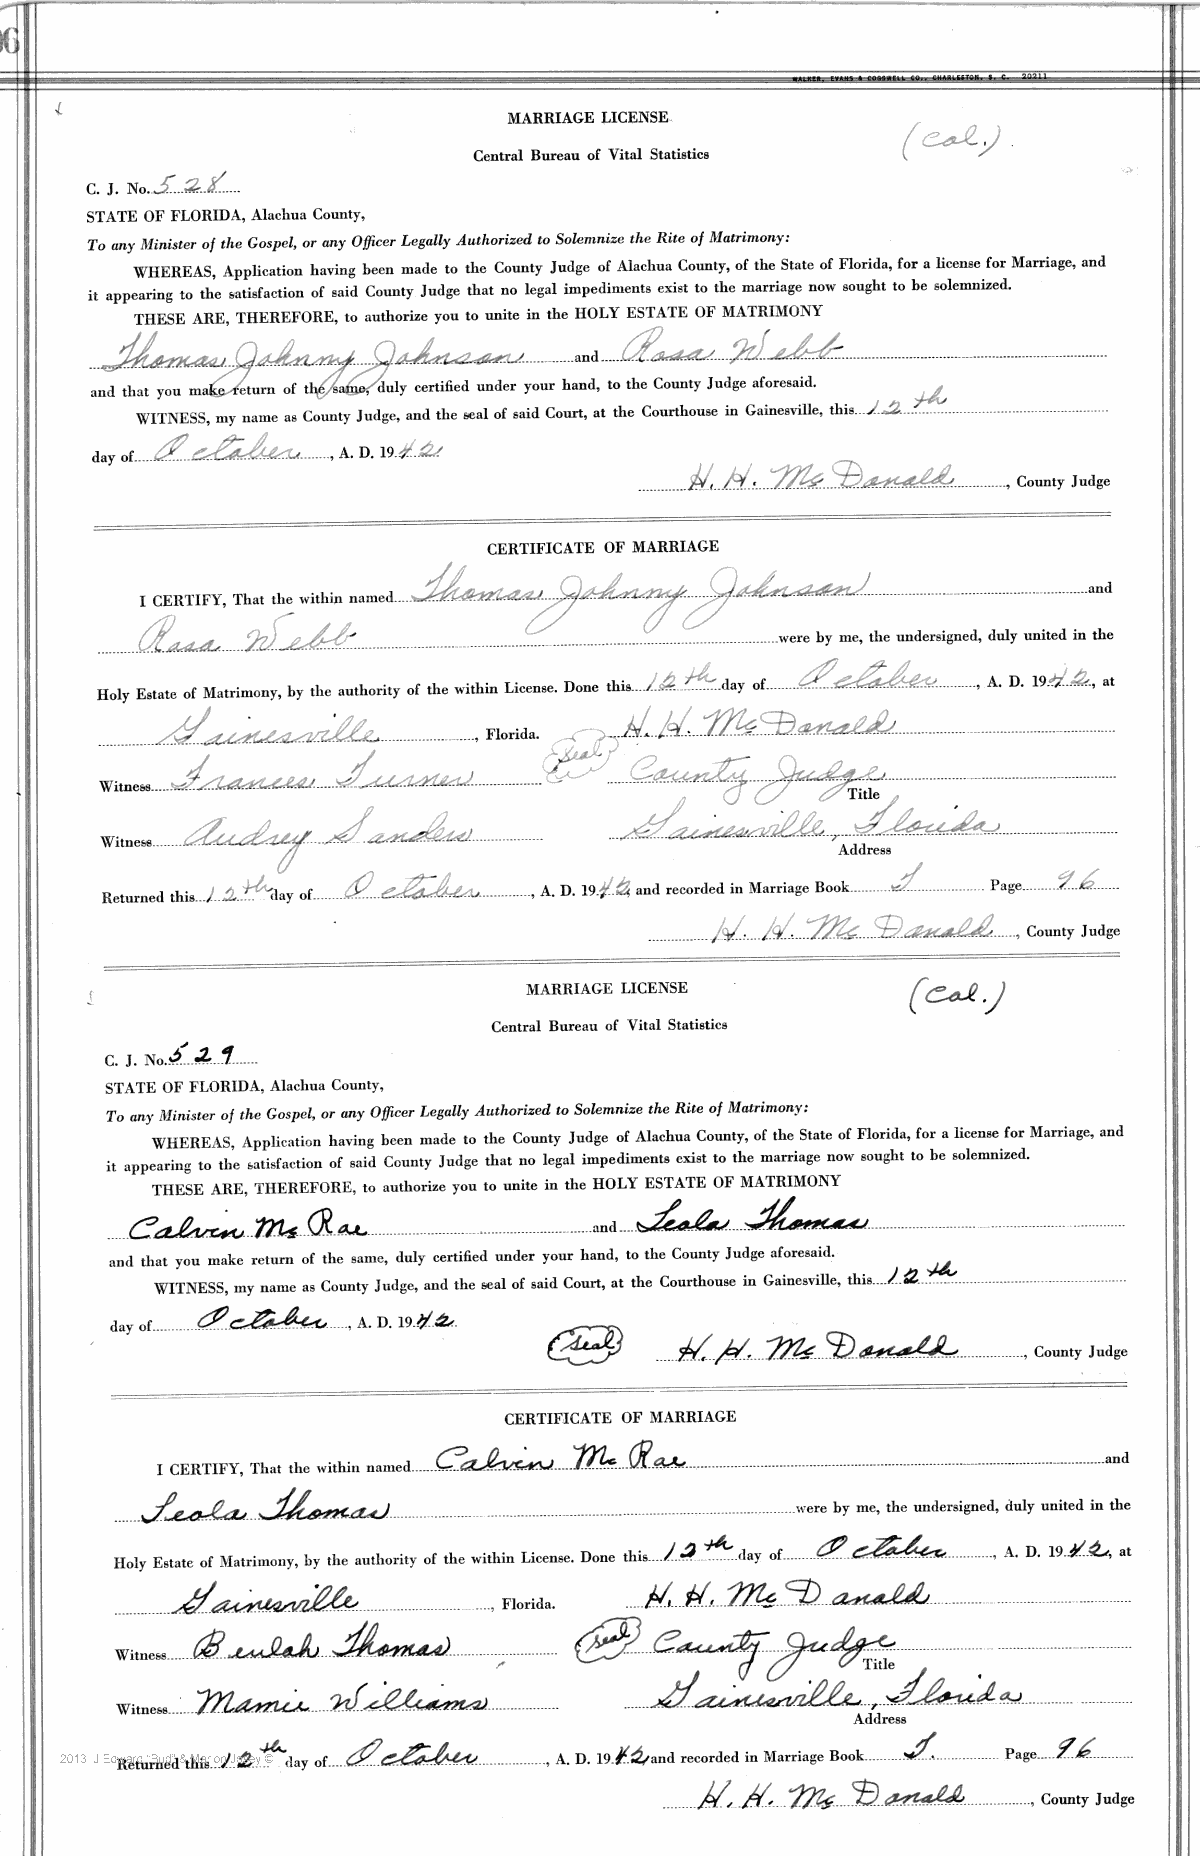 96
WALKER, EVANS & COGSWELL CO., CHARLESTON, S. C. 20211
MARRIAGE LICENSE
(Col.)
Central Bureau of Vital Statistics
C. J. No. 528
STATE OF FLORIDA, Alachua County,
To any Minister of the Gospel, or any Officer Legally Authorized to Solemnize the Rite of Matrimony:
WHEREAS, Application having been made to the County Judge of Alachua County, of the State of Florida, for a license for Marriage, and
it appearing to the satisfaction of said County Judge that no legal impediments exist to the marriage now sought to be solemnized.
THESE ARE, THEREFORE, to authorize you to unite in the HOLY ESTATE OF MATRIMONY
Thomas Johnny Johnson and Rosa Webb
and that you make return of the same, duly certified under your hand, to the County Judge aforesaid.
WITNESS, my name as County Judge, and the seal of said Court, at the Courthouse in Gainesville, this 12th
day of October, A. D. 1942
H. H. McDonald, County Judge
CERTIFICATE OF MARRIAGE
I CERTIFY, That the within named Thomas Johnny Johnson and
Rosa Webb were by me, the undersigned, duly united in the
Holy Estate of Matrimony, by the authority of the within License. Done this 12th day of October, A. D. 1942, at
Gainesville, Florida. H. H. McDonald
Witness Frances Turner Seal County Judge
Title
Witness Audrey Sanders Gainesville, Florida
Address
Returned this 12th day of October, A. D. 1942 and recorded in Marriage Book T Page 96
H. H. McDonald, County Judge
MARRIAGE LICENSE
(Col.)
Central Bureau of Vital Statistics
C. J. No. 529
STATE OF FLORIDA, Alachua County,
To any Minister of the Gospel, or any Officer Legally Authorized to Solemnize the Rite of Matrimony:
WHEREAS, Application having been made to the County Judge of Alachua County, of the State of Florida, for a license for Marriage, and
it appearing to the satisfaction of said County Judge that no legal impediments exist to the marriage now sought to be solemnized.
THESE ARE, THEREFORE, to authorize you to unite in the HOLY ESTATE OF MATRIMONY
Calvin McRae and Leola Thomas
and that you make return of the same, duly certified under your hand, to the County Judge aforesaid.
WITNESS, my name as County Judge, and the seal of said Court, at the Courthouse in Gainesville, this 12th
day of October, A. D. 1942
Seal H. H. McDonald, County Judge
CERTIFICATE OF MARRIAGE
I CERTIFY, That the within named Calvin McRae and
Leola Thomas were by me, the undersigned, duly united in the
Holy Estate of Matrimony, by the authority of the within License. Done this 12th day of October, A. D. 1942, at
Gainesville, Florida. H. H. McDonald
Witness Beulah Thomas Seal County Judge
Title
Witness Mamie Williams Gainesville, Florida
Address
Returned this 12th day of October, A. D. 1942 and recorded in Marriage Book T. Page 96
2013 J Edward "Bud" & Marion
H. H. McDonald, County Judge